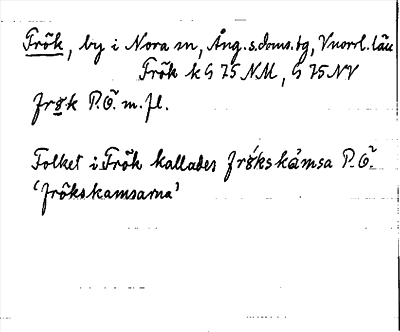 Frök, by i Nora sn, Ång. s. doms. tg, Vnorrl. län
Frök k G 75 NM, G 75 NV
frø̄k P.Ö. m. fl.
Folket i Frök kallades frø̄kskamsa P.Ö.
'frökskamsarna'